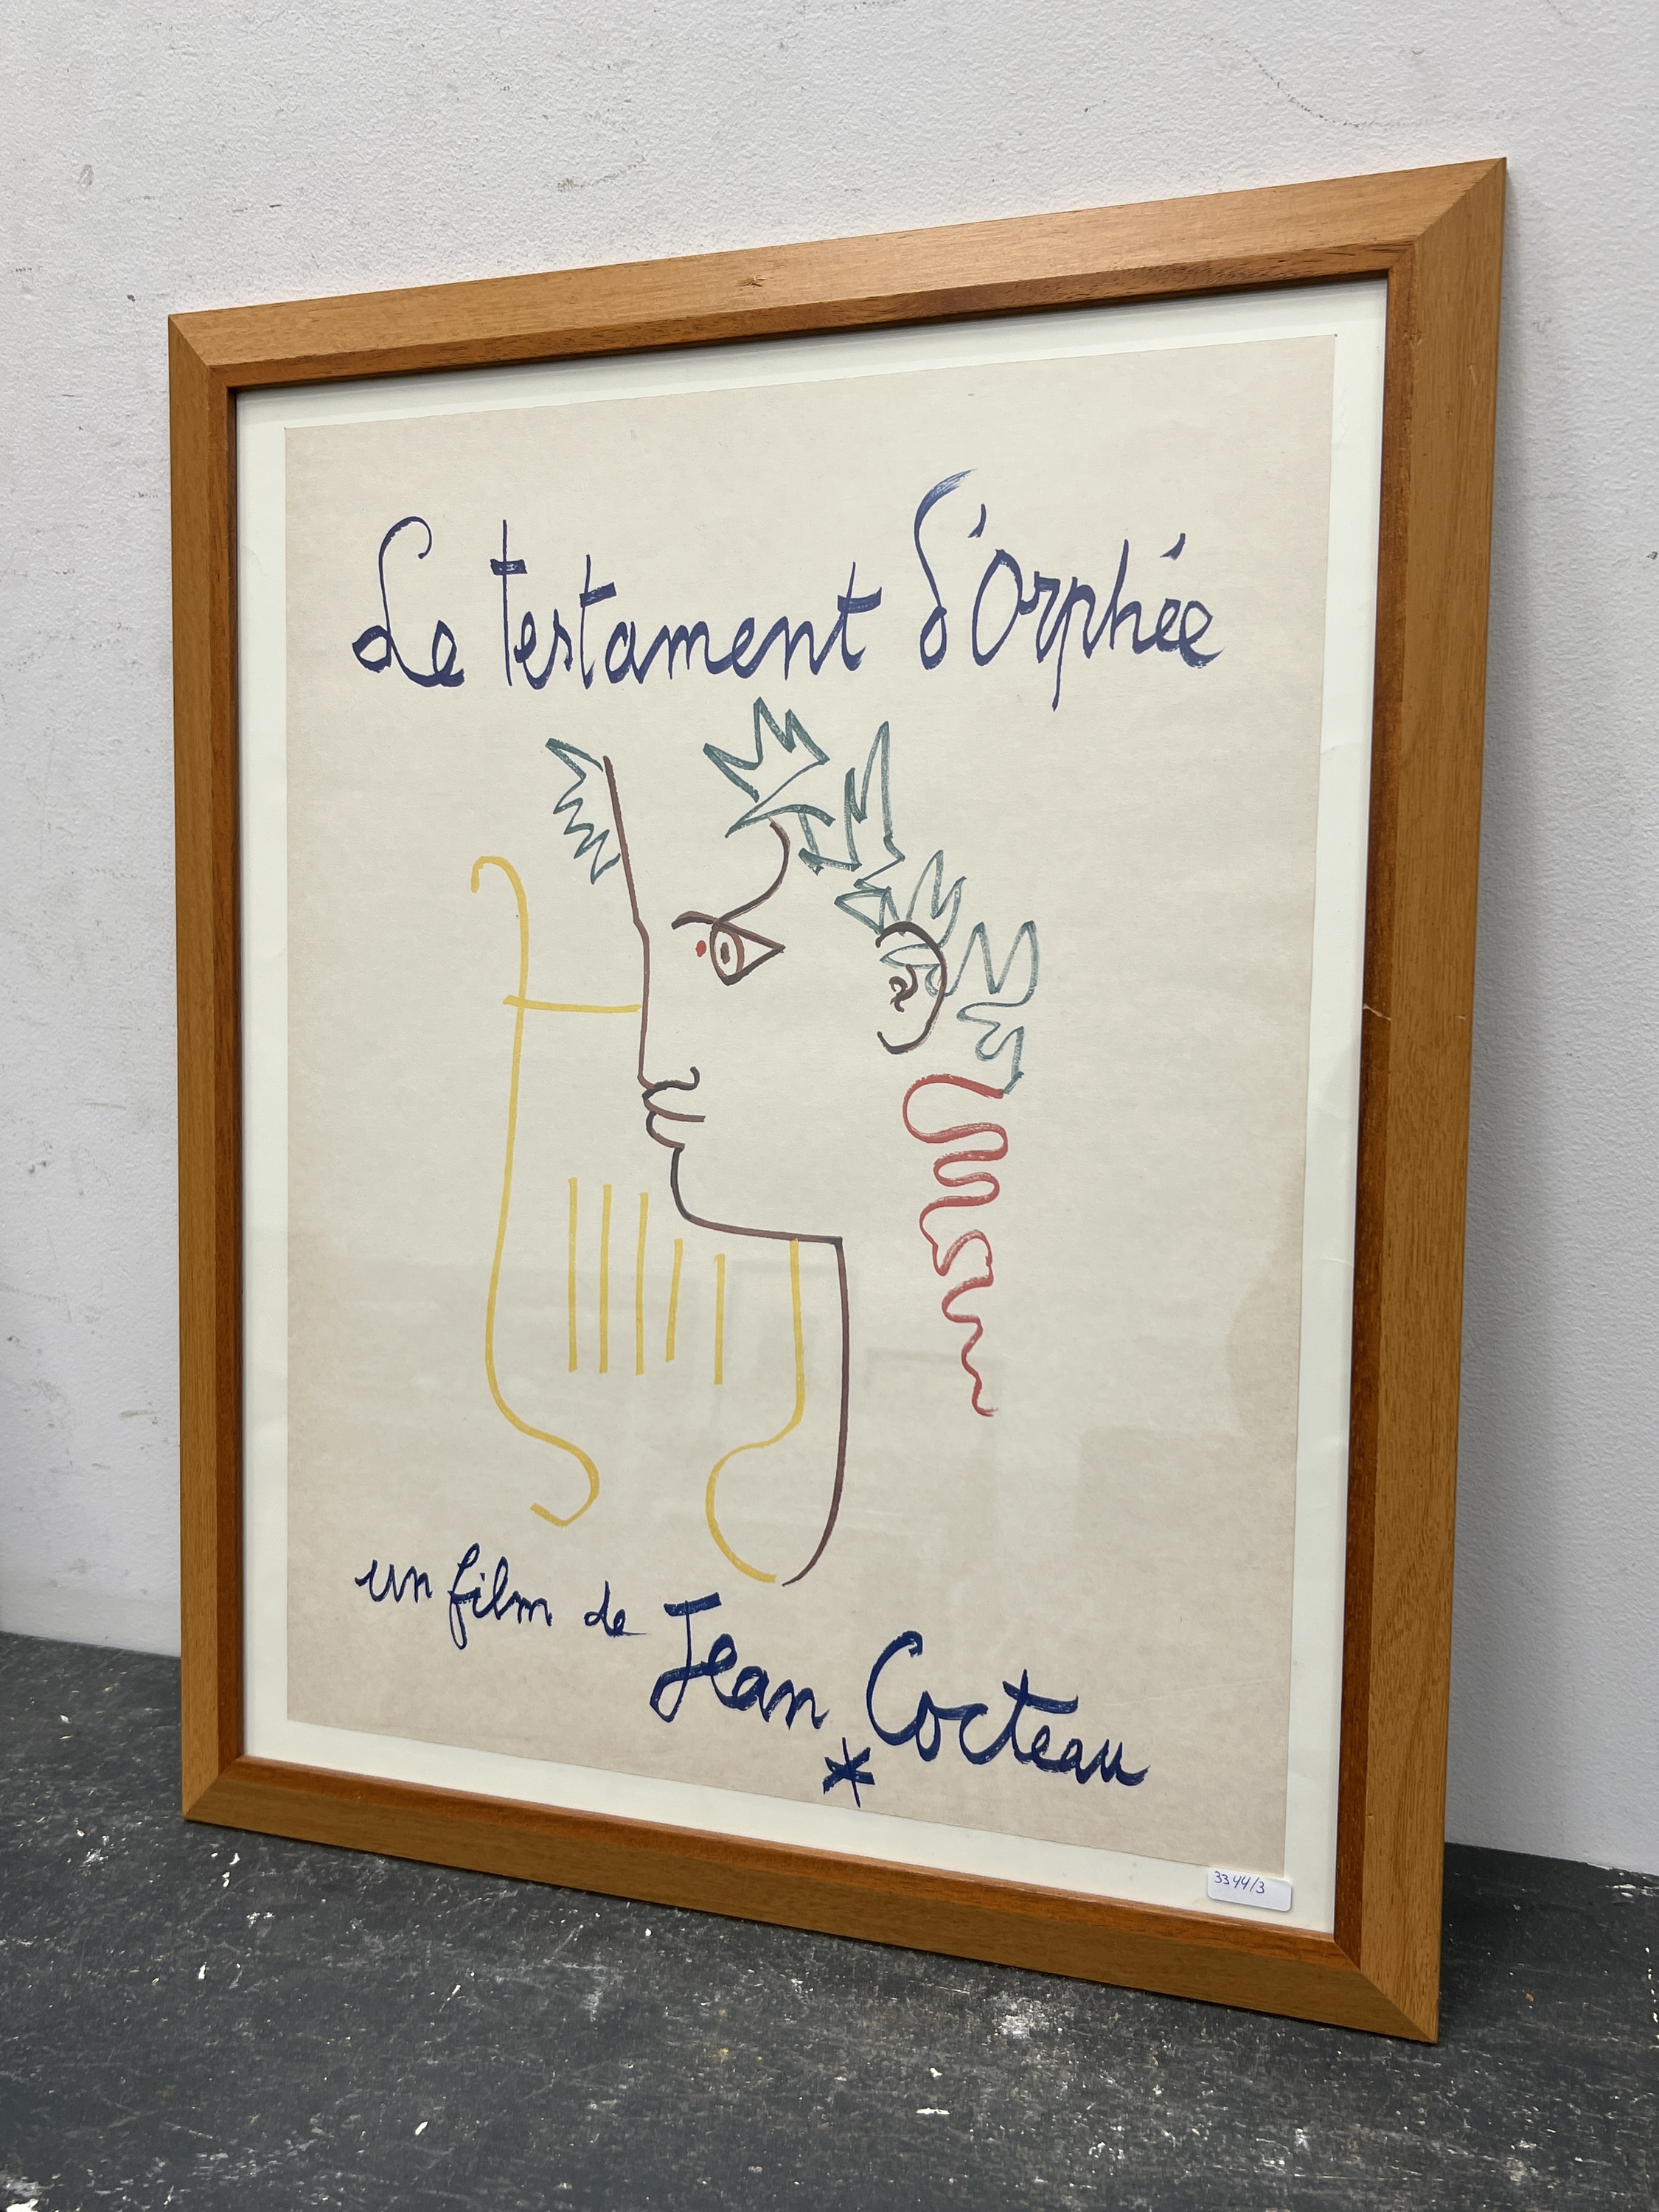 Le testament d'Orphée
un film de Jean Cocteau
*
3344/3